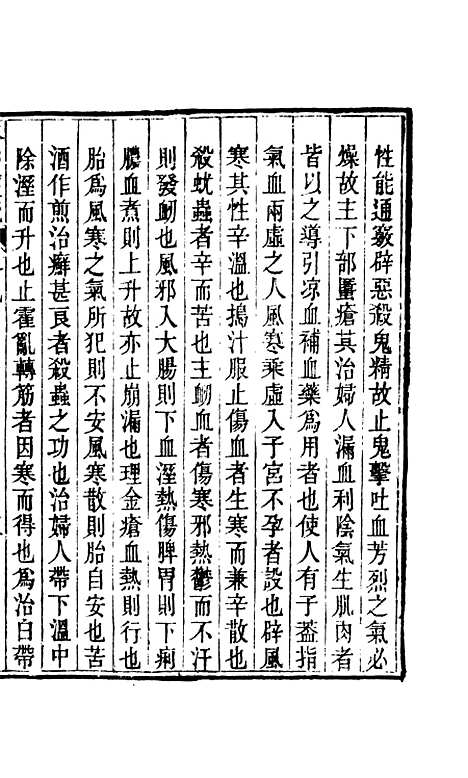 性能通竅辟惡殺鬼精故止鬼擊吐血芳烈之氣必
燥故主下部䘌瘡其治婦人漏血利陰氣生肌肉者
皆以之導引凉血補血藥爲用者也使人有子葢指
氣血兩虛之人風寒乘虛入子宮不孕者設也辟風
寒其性辛溫也搗汁服止傷血者生寒而兼辛散也
殺蚘蟲者辛而苦也主衂血者傷寒邪熱鬱而不汗
則發衂也風邪入大腸則下血溼熱傷脾胃則下痢
膿血煮則上升故亦止崩漏也理金瘡血熱則行也
胎爲風寒之氣所犯則不安風寒散則胎自安也苦
酒作煎治癬甚良者殺蟲之功也治婦人帶下溫中
除溼而升也止霍亂轉筋者因寒而得也爲治白帶